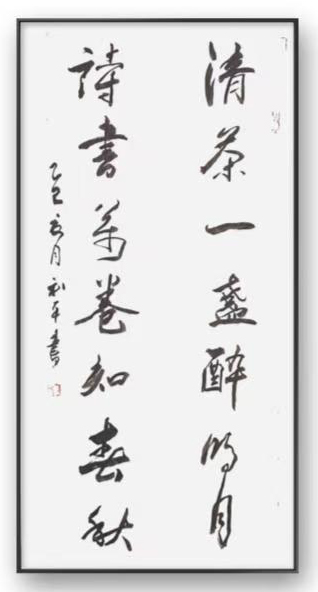 清茶一盏醉明月
詩書萬卷知春秋
乙巳 月 平書